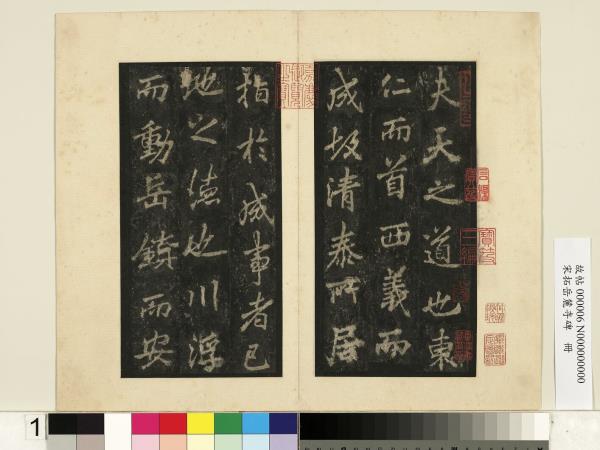 夫天之道也東
仁而首西義而
成坂清泰所居
指於成事者已
地之德也川浮
而動岳鎮而安
故帖 000006 N000000000
宋拓岳麓寺碑 冊
1